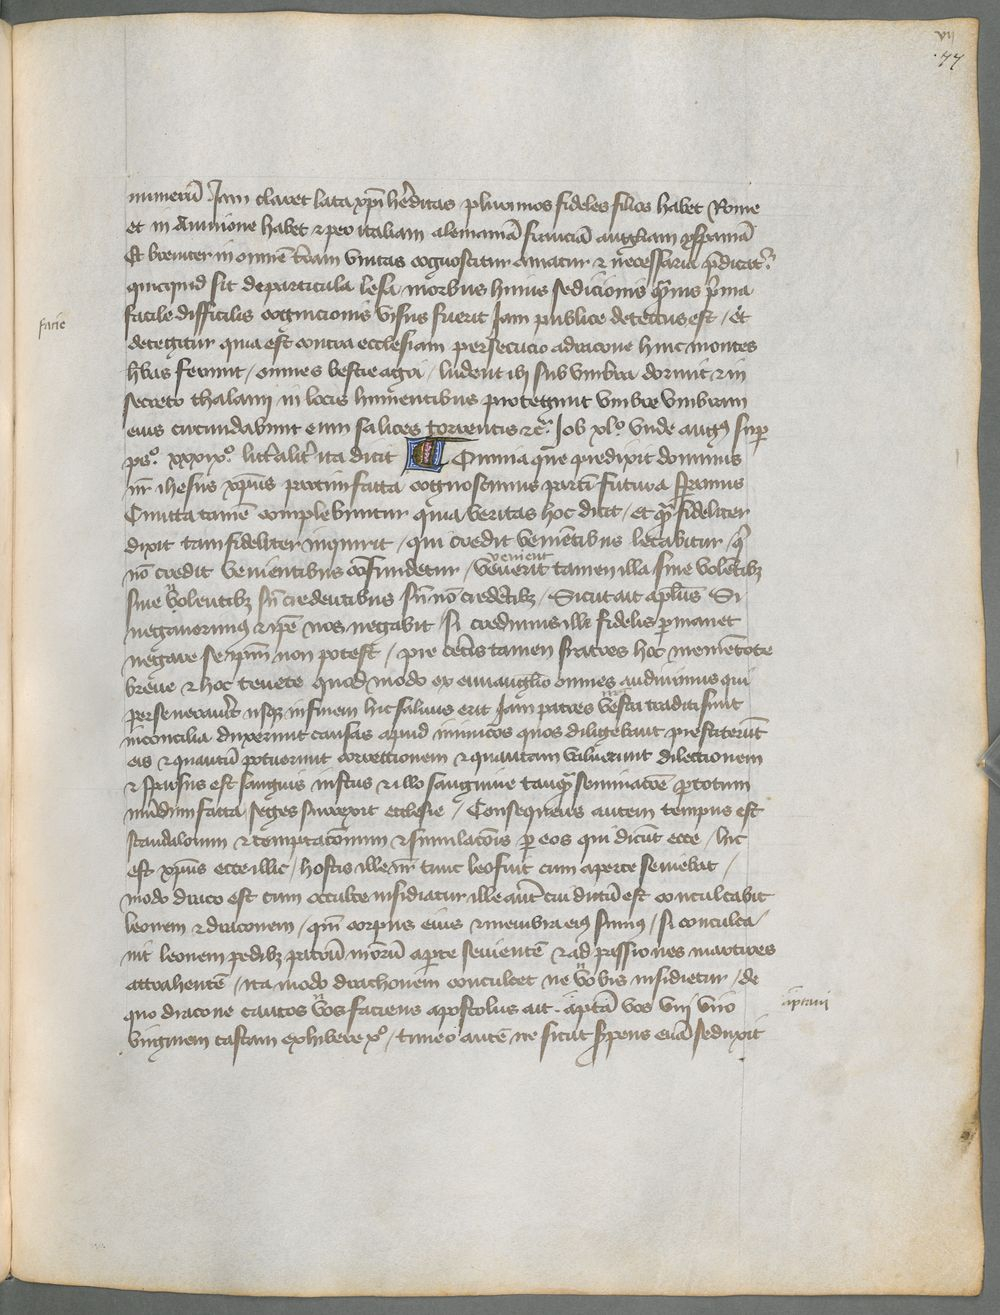 vij
77
numerū Jam claret lata xp̄i hēditas plurimos fideles filios habet Rome
et in Auinione habet ⁊ pro italiam alemaniā franciā angliam yspaniā
Et breuiter in omnē t̄ram vnitas cognoscitur amatur ⁊ necessaria p̄dicat᷑
quicquid sit de particula lesa morbus huius sedicionis q̄uis p̄ma
facile difficilis cognicionis visus fuerit Jam publice detectus est / et
facie
detegitur quia est contra ecclesiam persecucio a dracone huic montes
h̄bas ferunt / omnes bestie agri / ludent ibi sub vmbra dormit ⁊ in
secreto thalami in locis humentibus protegunt vmbre vmbram
eius circundabunt eum salices torrentis ⁊c̄ Job xlº vnde augꝰ sup̄
psº. xxxixº. lit̄alit̄ ita dicit Omnia que predixit dominus
nr̄ ihesus xp̄us partim facta cognoscimus partī futura sp̄amus
Cuncta tamē complebuntur quia veritas hoc dicit / et q̄ fideliter
dixit tam fideliter inquirit / qui credit venientibus letabitur / q̄
nō credit venientibus cōfundetur / venerit tamen illa siue volētibꝫ
venient
siue nolentibꝫ sn̄ credentibus sn̄ nō credētibꝫ / Sicut ait apl̄us Si
negauerimꝰ ⁊ ip̄e nos negabit si credimus ille fidelis p̄manet
negare se ip̄m non potest / pre cet̄is tamen fratres hoc mementote
breue ⁊ hoc tenete quod modo ex euuanglio omnes audiuimus qui
perseuerauerit usqꝫ in finem hic saluus erit Jam patres nostri traditi sunt
in concilia dixerunt causas apud inimicos quos diligebant prestiterūt
eis ⁊ quantū potuerunt correctionem ⁊ quantam valuerunt dilectionem
⁊ sparsus est sanguis iustus ⁊ illo sanguine tanq̄ seminatōe p̄ totum
mūdum facta seges surrexit ecclesie / Consequens autem tempus est
scandalorum ⁊ temptatōnum ⁊ simulatōis p̄ eos qui dicūt ecce / hic
est xp̄us ecce illic / hostis ille nr̄ tunc leo fuit cum aperte seuiebat /
modo draco est cum occulte insidiatur ille aut̄ cui dictū est conculcabit
leonem ⁊ draconem / qm̄ corpus eius ⁊ membra eiꝰ sumus / si conculca/
uit leonem pedibꝫ patrū nr̄orū ap̄te seuientē ⁊ ad passiones martires
attrahentē / ita modo drachonem conculcet ne nobis insidietur / de
quo dracone cautos nos faciens apostolus ait . aptā vos vni viro
aptaui
virginem castam exhibere xº / timeo autē ne sicut s̄pens euā seduxit